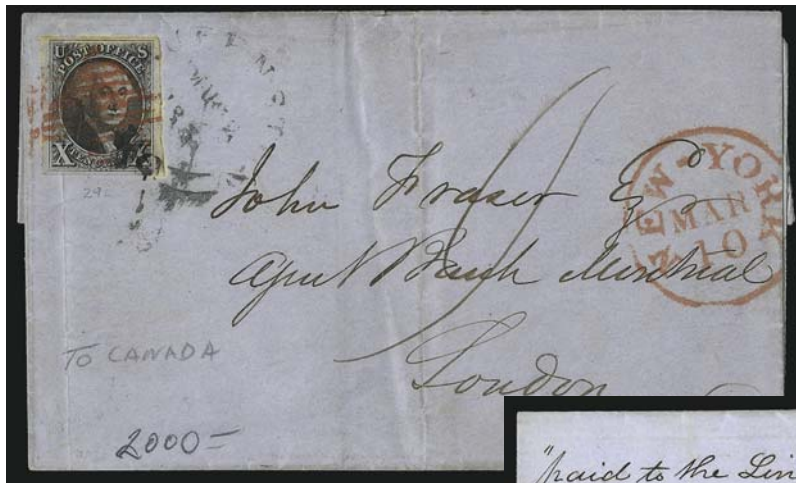 U S
POST OFFICE
X X
NEW-YORK
MAR
10
John Fraser Esqr
Agent Bank Montreal
London
TO CANADA
2000=
"paid to the Lin